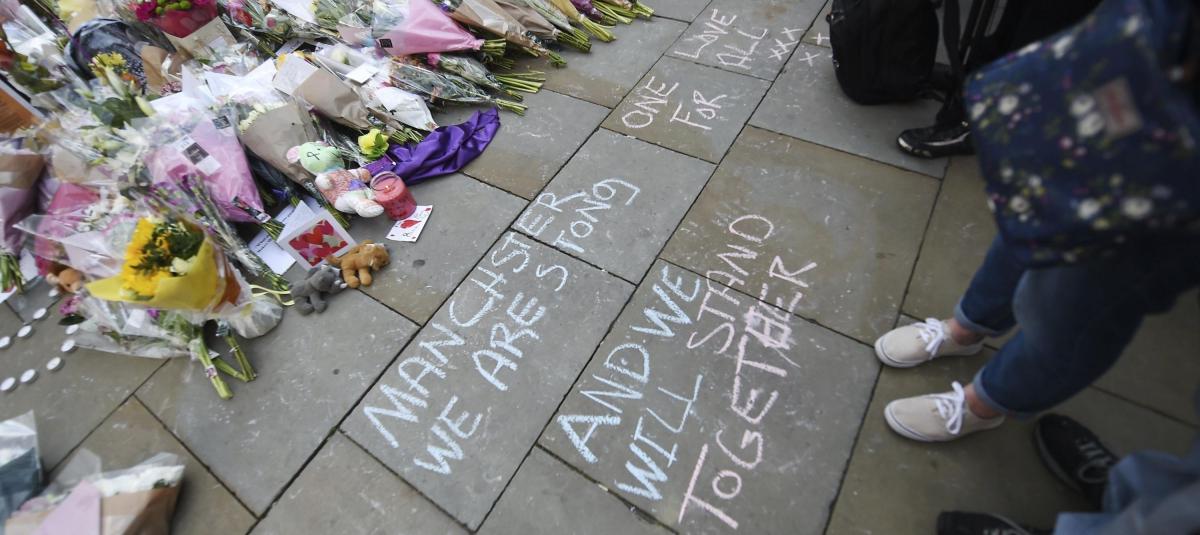 ONE LOVE
FOR ALL XXX
XX
MANCHSTER
WE ARE STONG
AND WE
WILL STAND
TOGETHER